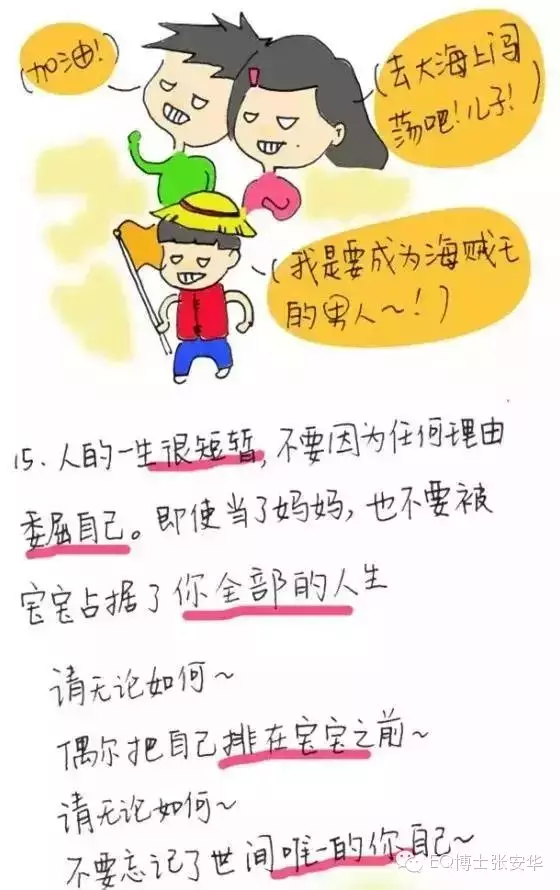 加油!
(去大海上闯
荡吧!儿子!)
(我是要成为海贼王
的男人~!)
15.人的一生很短暂,不要因为任何理由
委屈自己。即使当了妈妈,也不要被
宝宝占据了你全部的人生
请无论如何~
偶尔把自己排在宝宝之前~
请无论如何~
不要忘记了世间唯一的你自己~
EQ博士张安华